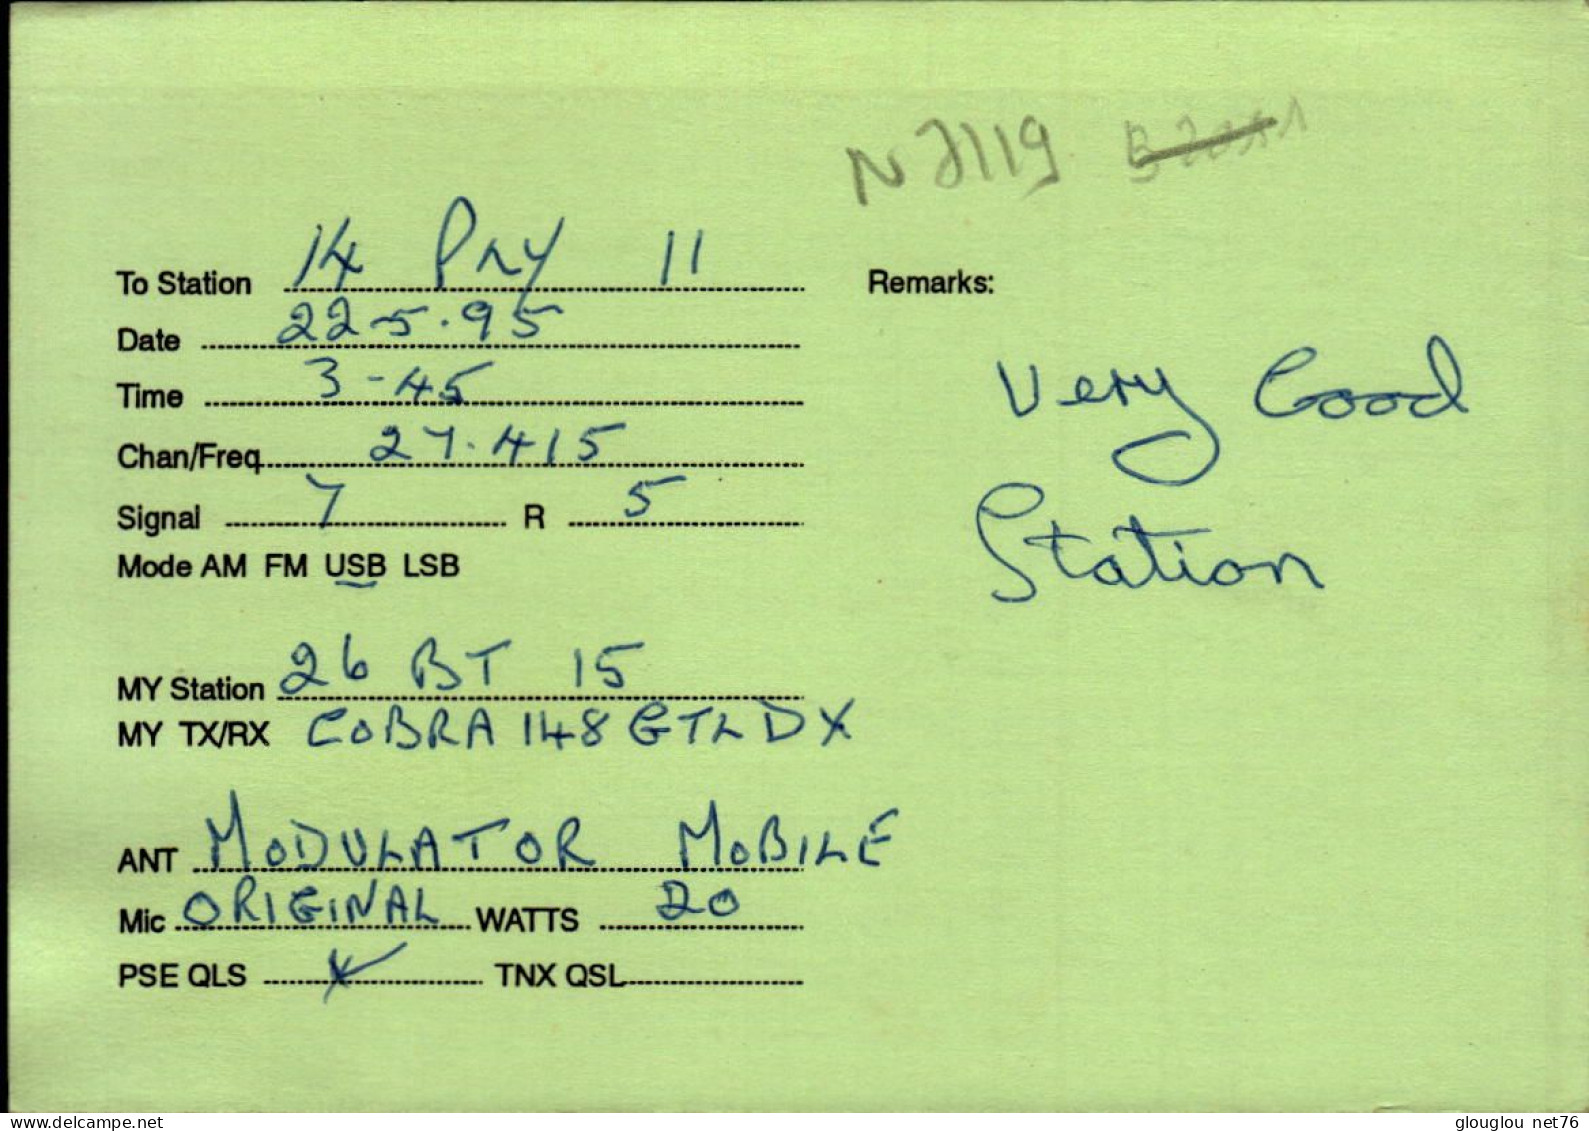 N 7119
To Station 14 PAY 11
Date 22-5.95
Time 3-45
Chan/Freq 27.415
Signal 7 R 5
Mode AM FM USB LSB
Remarks:
Very Good
Station
MY Station 26 BT 15
MY TX/RX COBRA 148 GTL DX
ANT MODULATOR MOBILE
Mic ORIGINAL WATTS 20
PSE QLS TNX QSL
www.delcampe.net
glouglou net76